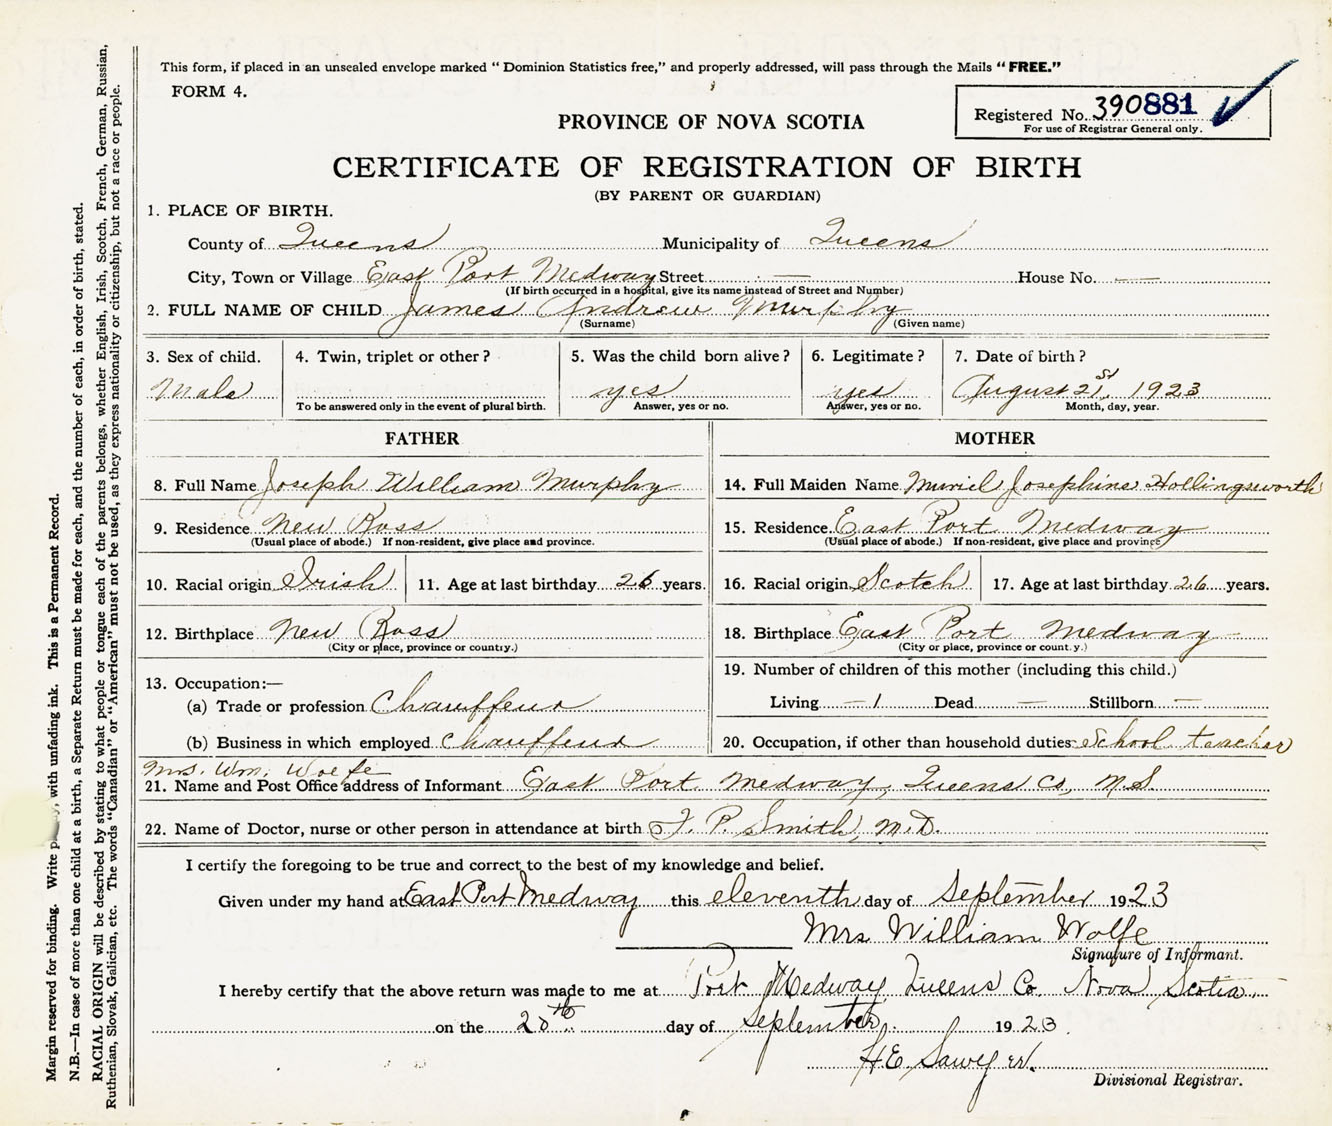 This form, if placed in an unsealed envelope marked “ Dominion Statistics free,” and properly addressed, will pass through the Mails “ FREE.”
FORM 4.
Registered No. 390881
For use of Registrar General only.
PROVINCE OF NOVA SCOTIA
CERTIFICATE OF REGISTRATION OF BIRTH
(BY PARENT OR GUARDIAN)
1. PLACE OF BIRTH.
County of Queens Municipality of Queens
City, Town or Village East Port Medway Street — House No. —
(If birth occurred in a hospital, give its name instead of Street and Number)
2. FULL NAME OF CHILD James Andrew Murphy
(Surname) (Given name)
3. Sex of child. 4. Twin, triplet or other ? 5. Was the child born alive ? 6. Legitimate ? 7. Date of birth ?
Male yes yes August 21st, 1923
To be answered only in the event of plural birth. Answer, yes or no. Answer, yes or no. Month, day, year.
FATHER MOTHER
8. Full Name Joseph William Murphy 14. Full Maiden Name Muriel Josephine Hollingsworth
9. Residence New Ross 15. Residence East Port Medway
(Usual place of abode.) If non-resident, give place and province. (Usual place of abode.) If non-resident, give place and province
10. Racial origin Irish 11. Age at last birthday 26 years. 16. Racial origin Scotch 17. Age at last birthday 26 years.
12. Birthplace New Ross 18. Birthplace East Port Medway
(City or place, province or country.) (City or place, province or country.)
13. Occupation:— 19. Number of children of this mother (including this child.)
(a) Trade or profession Chauffeur Living — 1 Dead — Stillborn —
(b) Business in which employed Chauffeur 20. Occupation, if other than household duties School teacher
Mrs. Wm. Wolfe
21. Name and Post Office address of Informant East Port Medway, Queens Co, N.S.
22. Name of Doctor, nurse or other person in attendance at birth J. P. Smith, M.D.
I certify the foregoing to be true and correct to the best of my knowledge and belief.
Given under my hand at East Port Medway this eleventh day of September 1923
Mrs William Wolfe
Signature of Informant.
I hereby certify that the above return was made to me at Port Medway Queens Co. Nova Scotia
on the 20th day of September 1923
H E Sawyer
Divisional Registrar.
Margin reserved for binding. Write with unfading ink. This is a Permanent Record.
N.B.—In case of more than one child at a birth, a Separate Return must be made for each, and the number of each, in order of birth, stated.
RACIAL ORIGIN will be described by stating to what people or tongue each of the parents belongs, whether English, Irish, Scotch, French, German, Russian,
Ruthenian, Slovak, Galician, etc. The words “Canadian” or “American” must not be used, as they express nationality or citizenship, but not a race or people.